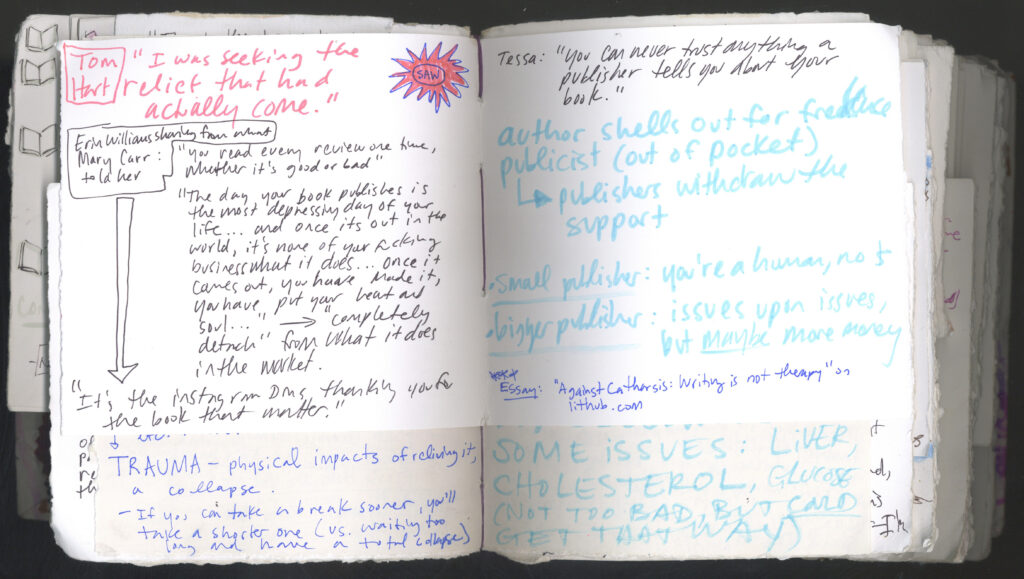 Tom
Hart
"I was seeking the
relief that had
actually come."
SAW
Erin Williams sharing from what
Mary Carr:
told her
"You read every review one time,
whether it's good or bad"
"The day your book publishes is
the most depressing day of your
life... and once its out in the
world, it's none of your fucking
business what it does... Once it
comes out, you have made it,
you have put your heart and
soul..." → "completely
detach" from what it does
in the market.
"It's the instagram DMs thanking you for
the book that matter."
etc.
TRAUMA - physical impacts of reliving it,
a collapse.
- If you can take a break sooner, you'll
take a shorter one (vs. waiting too
long and have a total collapse)
Tessa: "You can never trust anything a
publisher tells you about your
book."
author shells out for freelance
publicist (out of pocket)
↳ publishers withdraw the
support
• Small publisher: you're a human, no $
• bigger publisher: issues upon issues,
but maybe more money
****
Essay: "Against Catharsis: Writing is not therapy" on
lithub.com
SOME ISSUES: LIVER,
CHOLESTEROL, GLUCOSE
(NOT TOO BAD, BUT COULD
GET THAT WAY)
I'm